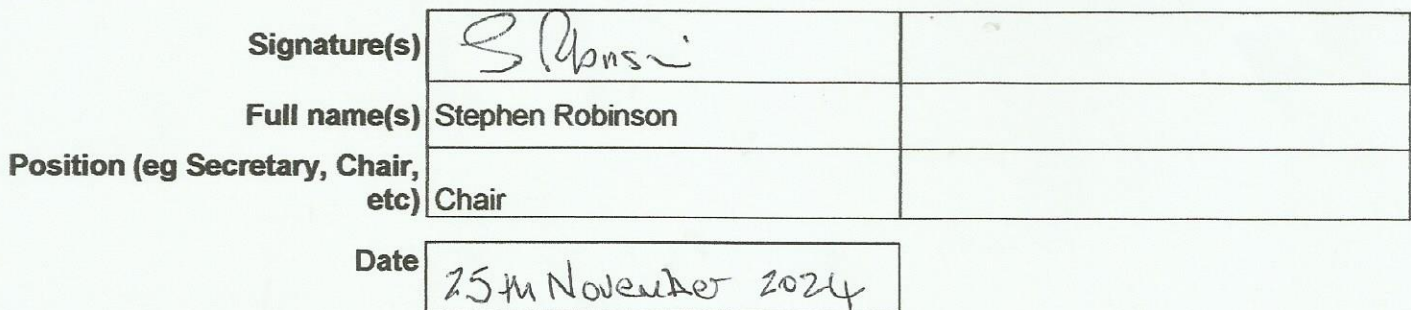 Signature(s) S Robinson
Full name(s) Stephen Robinson
Position (eg Secretary, Chair,
etc) Chair
Date 25th November 2024